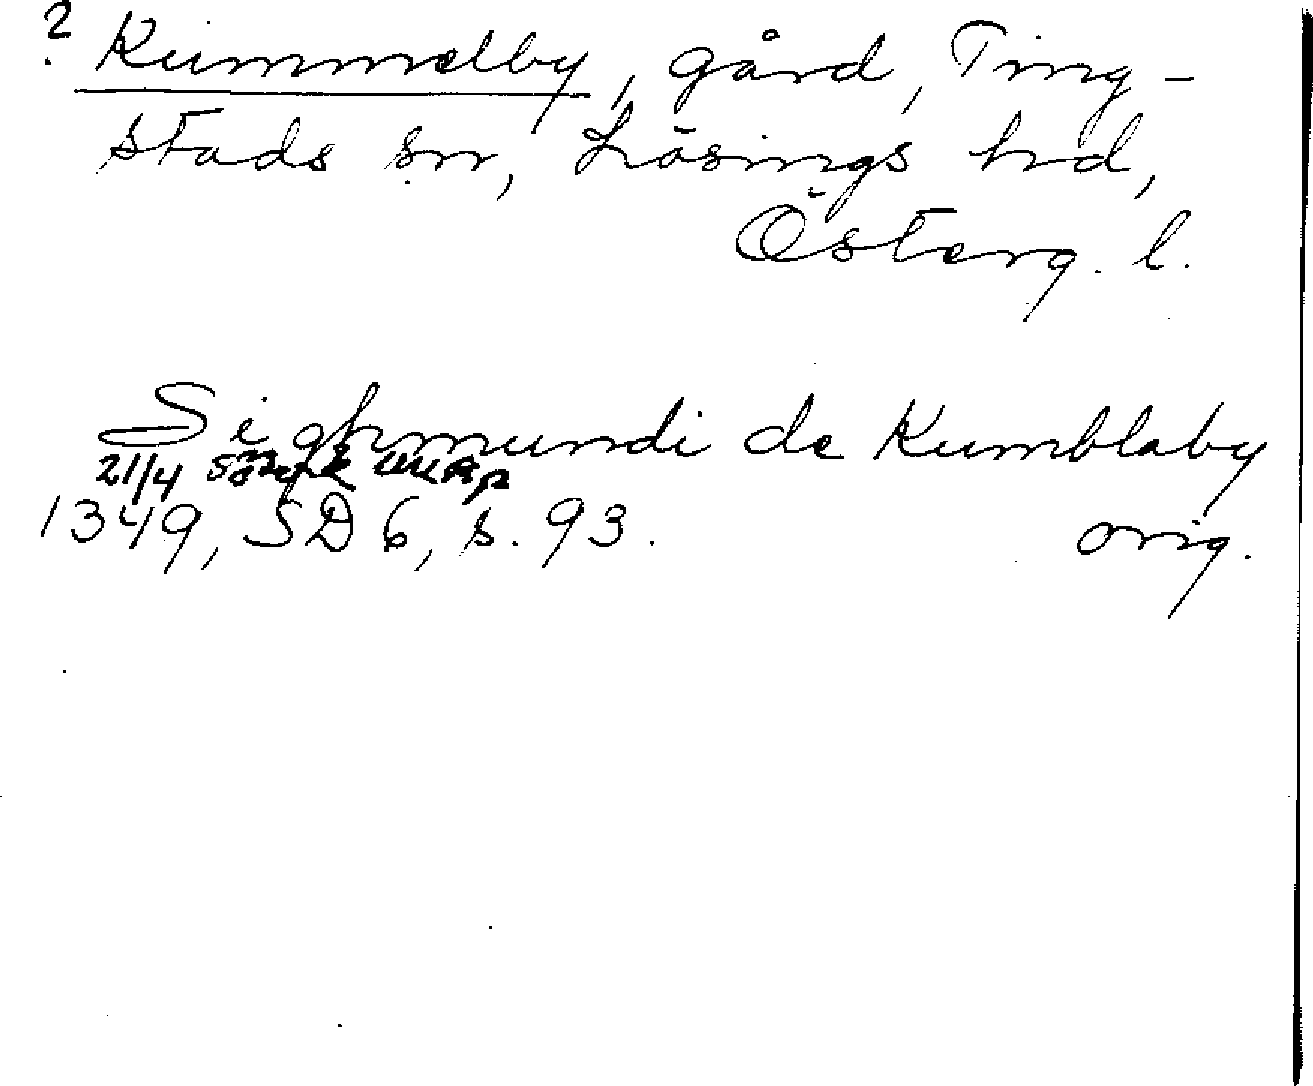 ? Kummelby, gård, Ting-
stads sn, Lösings hd,
Österg. l.
Sighmundi de Kumblaby
21/4
1349, SD 6, s. 93. orig.